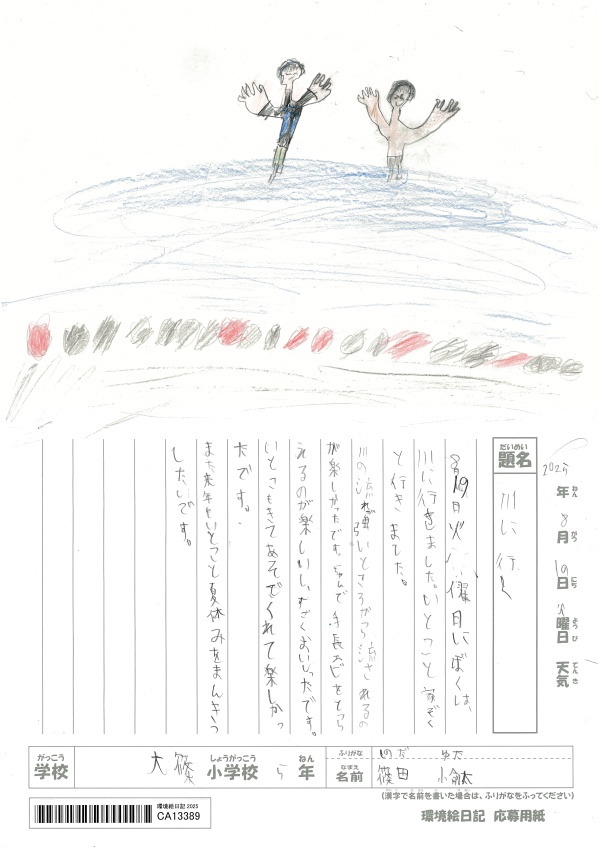 題名
だいめい
川に行く
2025年 8月 19日 火曜日 天気
ねん がつ にち ようび てんき
8月19日火曜日にぼくは、
川に行きました。いとこと家ぞく
と行きました。
川の流れが強いところがら流されるの
が楽しかったです。あみで手長エビをとら
えるのが楽しいし、すごくおいしかったです。
いとこもきてあそんでくれて楽しかっ
たです。
また来年もいとこと夏休みをまんきつ
したいです。
がっこう
学校
大篠
しょうがっこう
小学校
5
ねん
年
ふりがな
しのだ ゆた
なまえ
名前
篠田
(漢字で名前を書いた場合は、ふりがなをふってください)
環境絵日記 2025
CA13389
環境絵日記 応募用紙